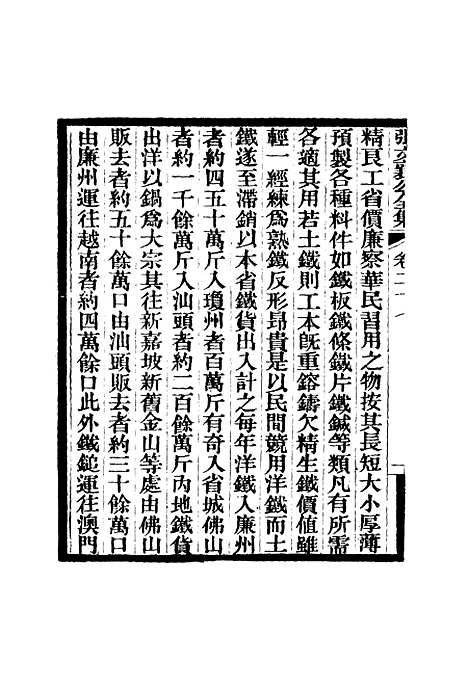 張文襄公全集 卷二十八
精良工省價廉察華民習用之物按其長短大小厚薄
預製各種料件如鐵板鐵條鐵片鐵鍼等類凡有所需
各適其用若土鐵則工本旣重鎔鑄欠精生鐵價値雖
輕一經練爲熟鐵反形昂貴是以民間競用洋鐵而土
鐵遂至滯銷以本省鐵貨出入計之每年洋鐵入廉州
者約四五十萬斤入瓊州者百萬斤有奇入省城佛山
者約一千餘萬斤入汕頭者約二百餘萬斤內地鐵貨
出洋以鍋爲大宗其往新嘉坡新舊金山等處由佛山
販去者約五十餘萬口由汕頭販去者約三十餘萬口
由廉州運往越南者約四萬餘口此外鐵鎚運往澳門